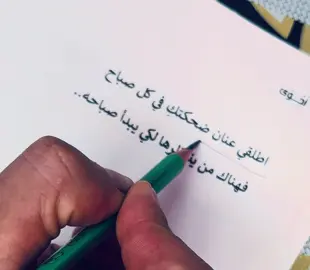 أخوى
اطلقي عنان ضحكتك في كل صباح
فهناك من ينتظرها لكي يبدأ صباحه..